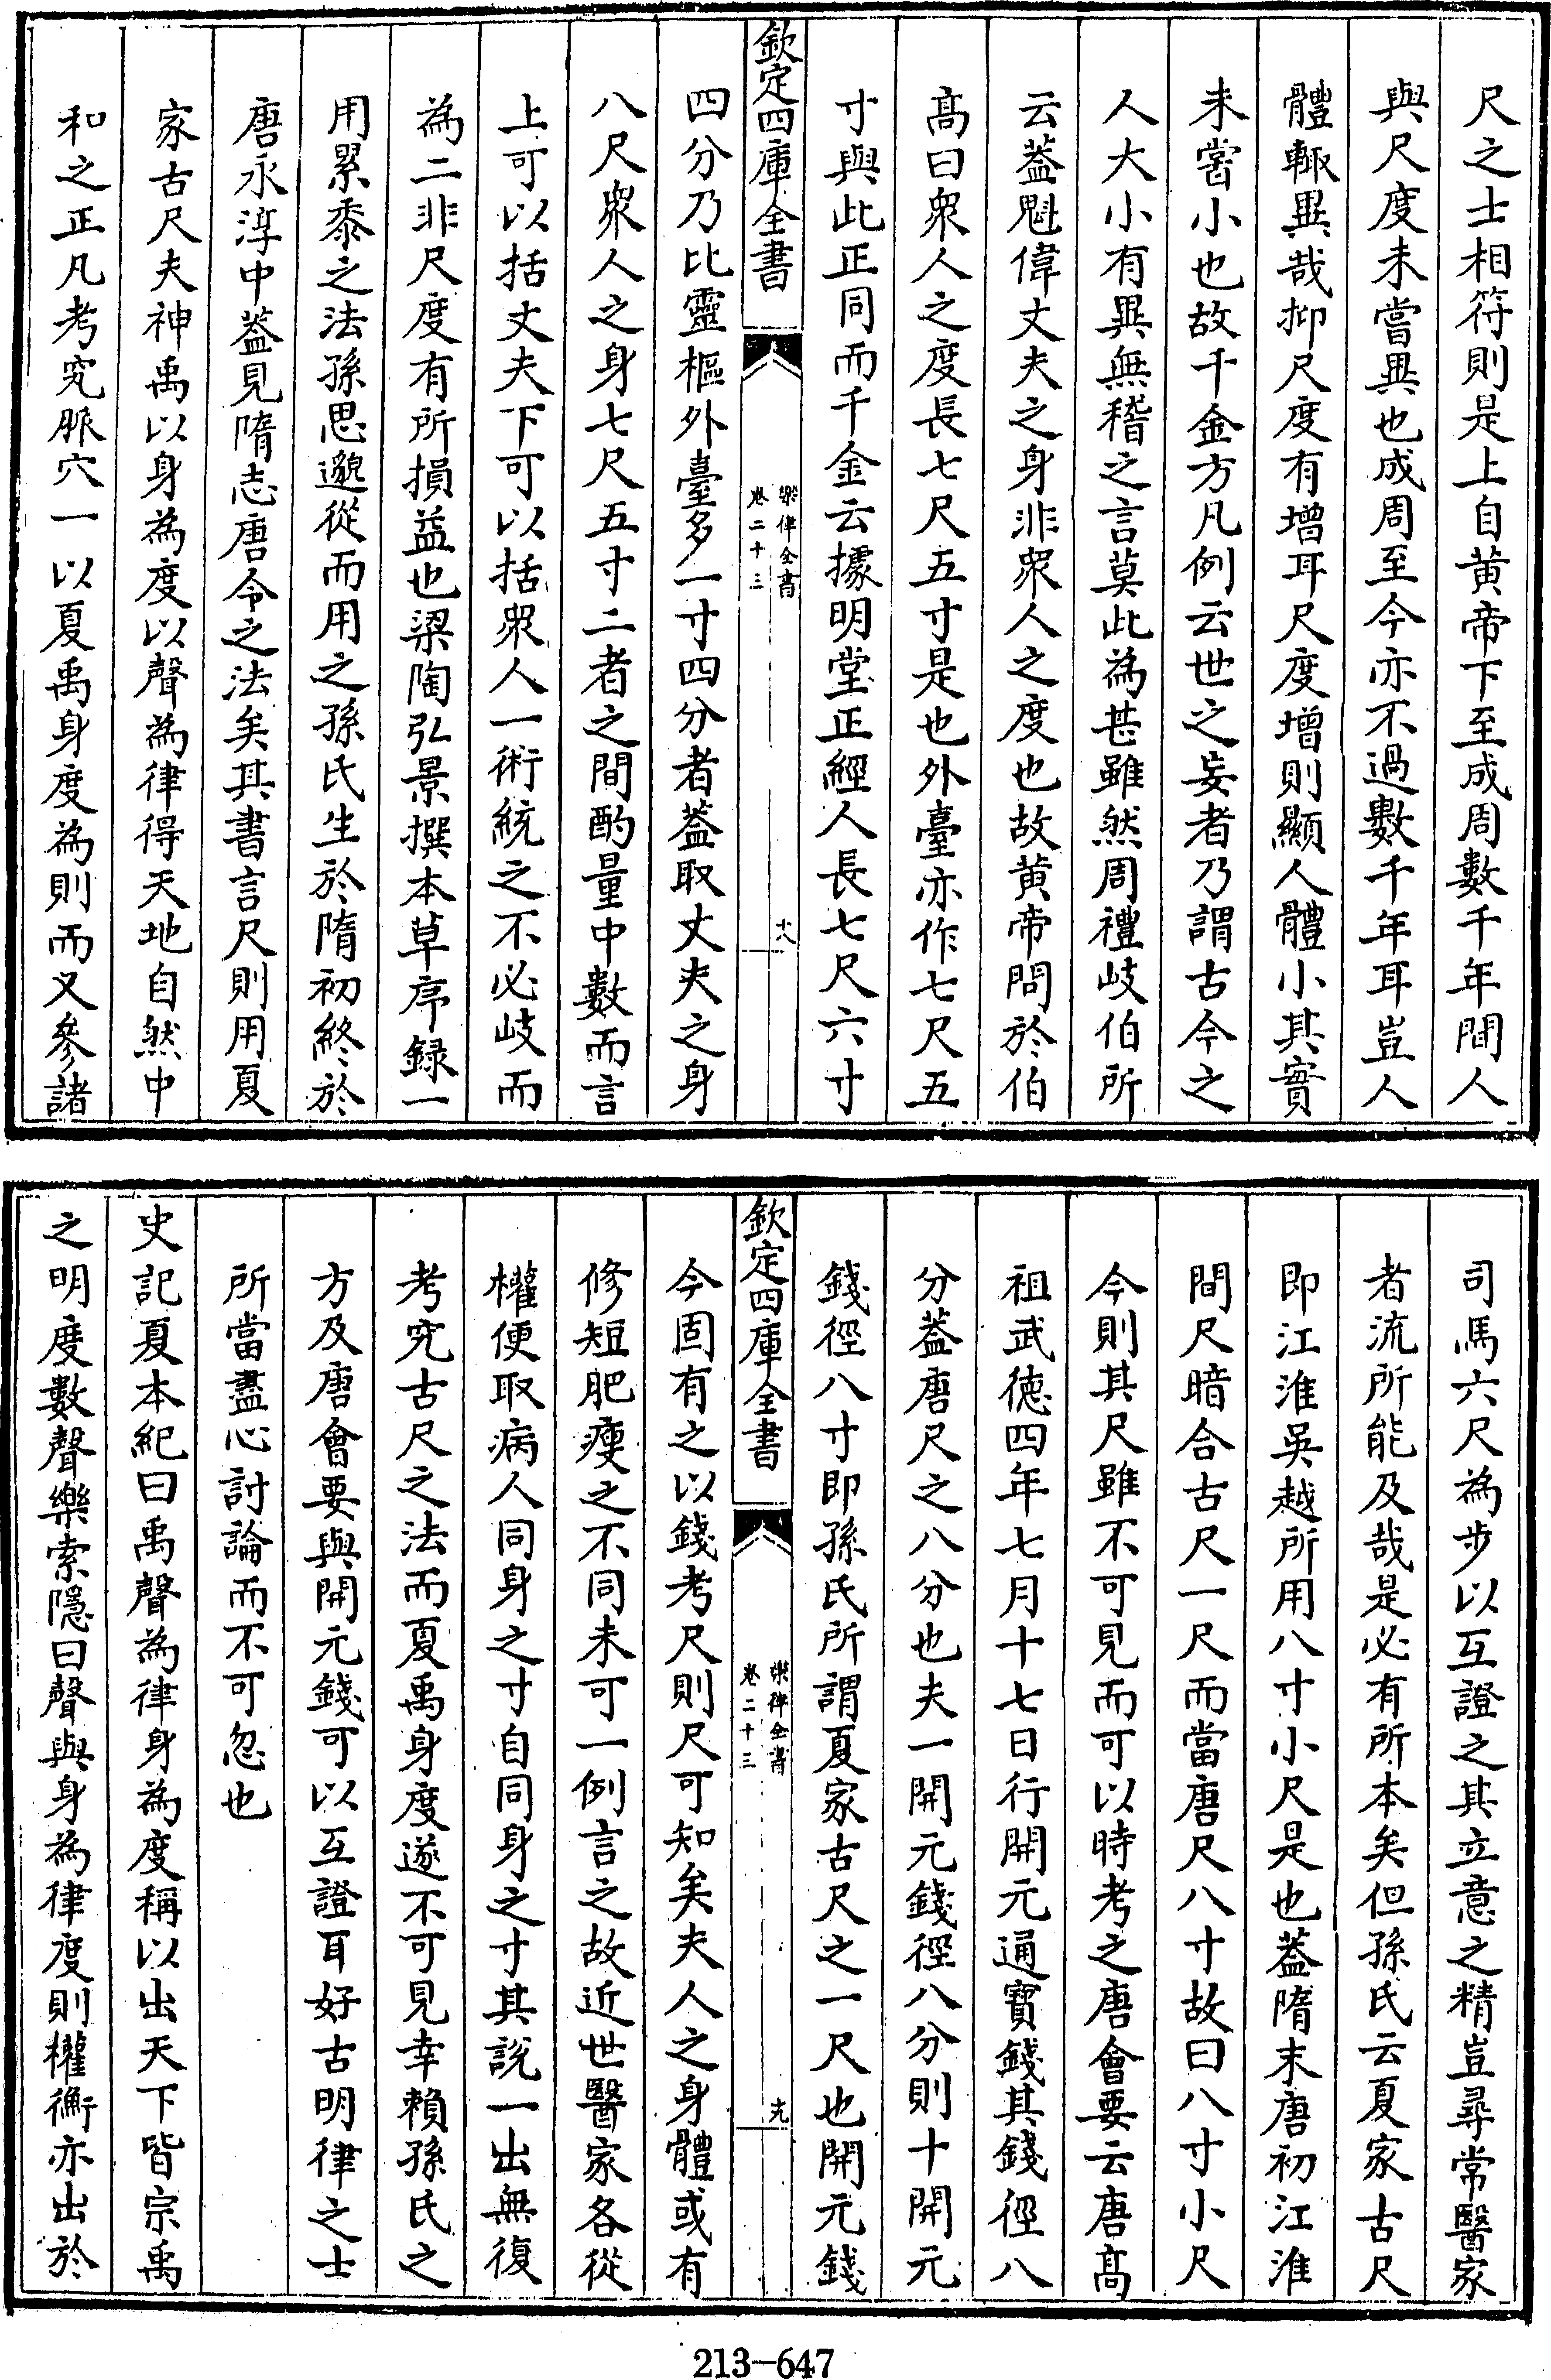 尺之士相符則是上自黄帝下至成周數千年間人
與尺度未嘗異也成周至今亦不過數千年耳豈人
體輙異哉抑尺度有增耳尺度增則顯人體小其實
未嘗小也故千金方凡例云世之妄者乃謂古今之
人大小有異無稽之言莫此為甚雖然周禮岐伯所
云葢魁偉丈夫之身非衆人之度也故黄帝問於伯
高曰衆人之度長七尺五寸是也外臺亦作七尺五
寸與此正同而千金云據明堂正經人長七尺六寸
欽定四庫全書
樂律全書
卷二十三
十八
四分乃比靈樞外臺多一寸四分者葢取丈夫之身
八尺衆人之身七尺五寸二者之間酌量中數而言
上可以括丈夫下可以括衆人一術統之不必岐而
為二非尺度有所損益也梁陶弘景撰本草序録一
用累黍之法孫思邈從而用之孫氏生於隋初終於
唐永淳中葢見隋志唐令之法矣其書言尺則用夏
家古尺夫神禹以身為度以聲為律得天地自然中
和之正凡考究脈穴一以夏禹身度為則而又參諸
司馬六尺為步以互證之其立意之精豈尋常醫家
者流所能及哉是必有所本矣但孫氏云夏家古尺
即江淮吳越所用八寸小尺是也葢隋末唐初江淮
間尺暗合古尺一尺而當唐尺八寸故曰八寸小尺
今則其尺雖不可見而可以時考之唐會要云唐髙
祖武徳四年七月十七日行開元通寳錢其錢徑八
分葢唐尺之八分也夫一開元錢徑八分則十開元
錢徑八寸即孫氏所謂夏家古尺之一尺也開元錢
欽定四庫全書
樂律全書
卷二十三
十九
今固有之以錢考尺則尺可知矣夫人之身體或有
修短肥瘦之不同未可一例言之故近世醫家各從
權便取病人同身之寸自同身之寸其說一出無復
考究古尺之法而夏禹身度遂不可見幸賴孫氏之
方及唐會要與開元錢可以互證耳好古明律之士
所當盡心討論而不可忽也
史記夏本紀曰禹聲為律身為度稱以出天下皆宗禹
之明度數聲樂索隱曰聲與身為律度則權衡亦出於
213-647